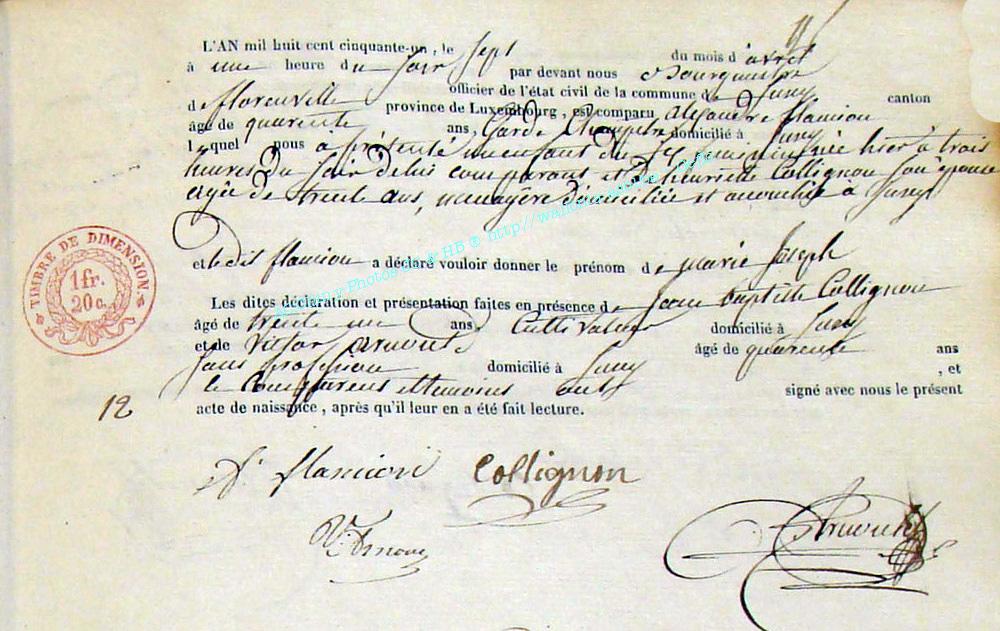 11
L'AN mil huit cent cinquante-un, le sept du mois d'avril
à une heure du soir par devant nous Bourgmestre
officier de l'état civil de la commune de Suxy canton
de florenville province de Luxembourg, est comparu alexandre flamion
âgé de quarente ans, Garde Champetre domicilié à Suxy
lequel nous a présenté un enfant du sexe feminin née hier à trois
heures du soir de lui comparant et de henriette Collignon son épouse
agée de trente ans, menagère domiciliée et accouchée à Suxy
et le dit flamion a déclaré vouloir donner le prénom de marie Joseph
Les dites déclaration et présentation faites en présence de Jean baptiste Collignon
âgé de trente un ans Cultivateur domicilié à Suxy
et de Victor arnould âgé de quarente ans
sans profession domicilié à Suxy, et
le Comparent et temoins ont signé avec nous le présent
acte de naissance, après qu'il leur en a été fait lecture.
TIMBRE DE DIMENSION
1 fr.
20 c.
12
A. flamion Collignon
V. Arnould
Photos http://